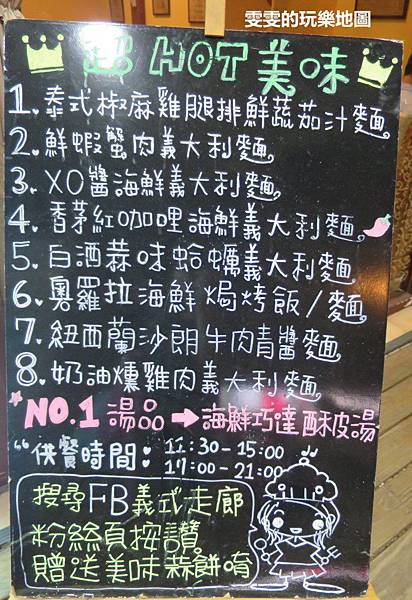 雯雯的玩樂地圖
超 HOT 美味
1. 泰式椒麻雞腿排鮮蔬茄汁麵
2. 鮮蝦蟹肉義大利麵
3. XO醬海鮮義大利麵
4. 香茅紅咖哩海鮮義大利麵
5. 白酒蒜味蛤蠣義大利麵
6. 奧羅拉海鮮焗烤飯/麵
7. 紐西蘭沙朗牛肉青醬麵
8. 奶油燻雞肉義大利麵
NO.1 湯品→海鮮巧達酥皮湯
供餐時間: 11:30-15:00
17:00-21:00
搜尋FB義式走廊
粉絲頁按讚
贈送美味蒜餅唷